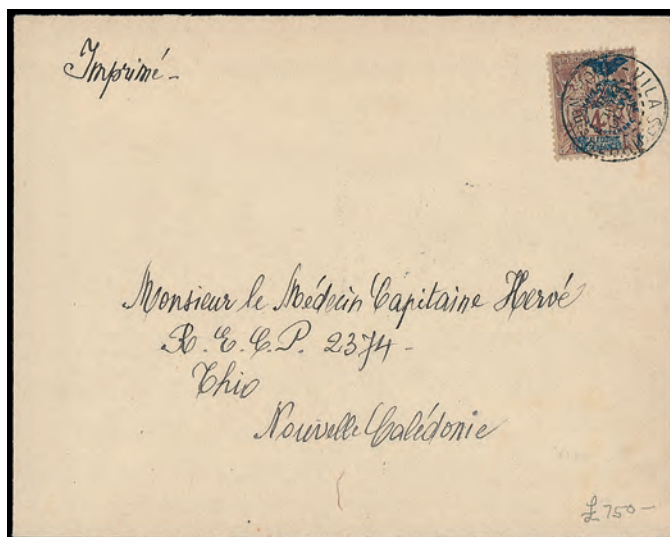 Imprimé-
PORT-VILA
Monsieur le Médecin Capitaine Hervé
R. E. C. P. 2374 -
Thio
Nouvelle Calédonie
£750-